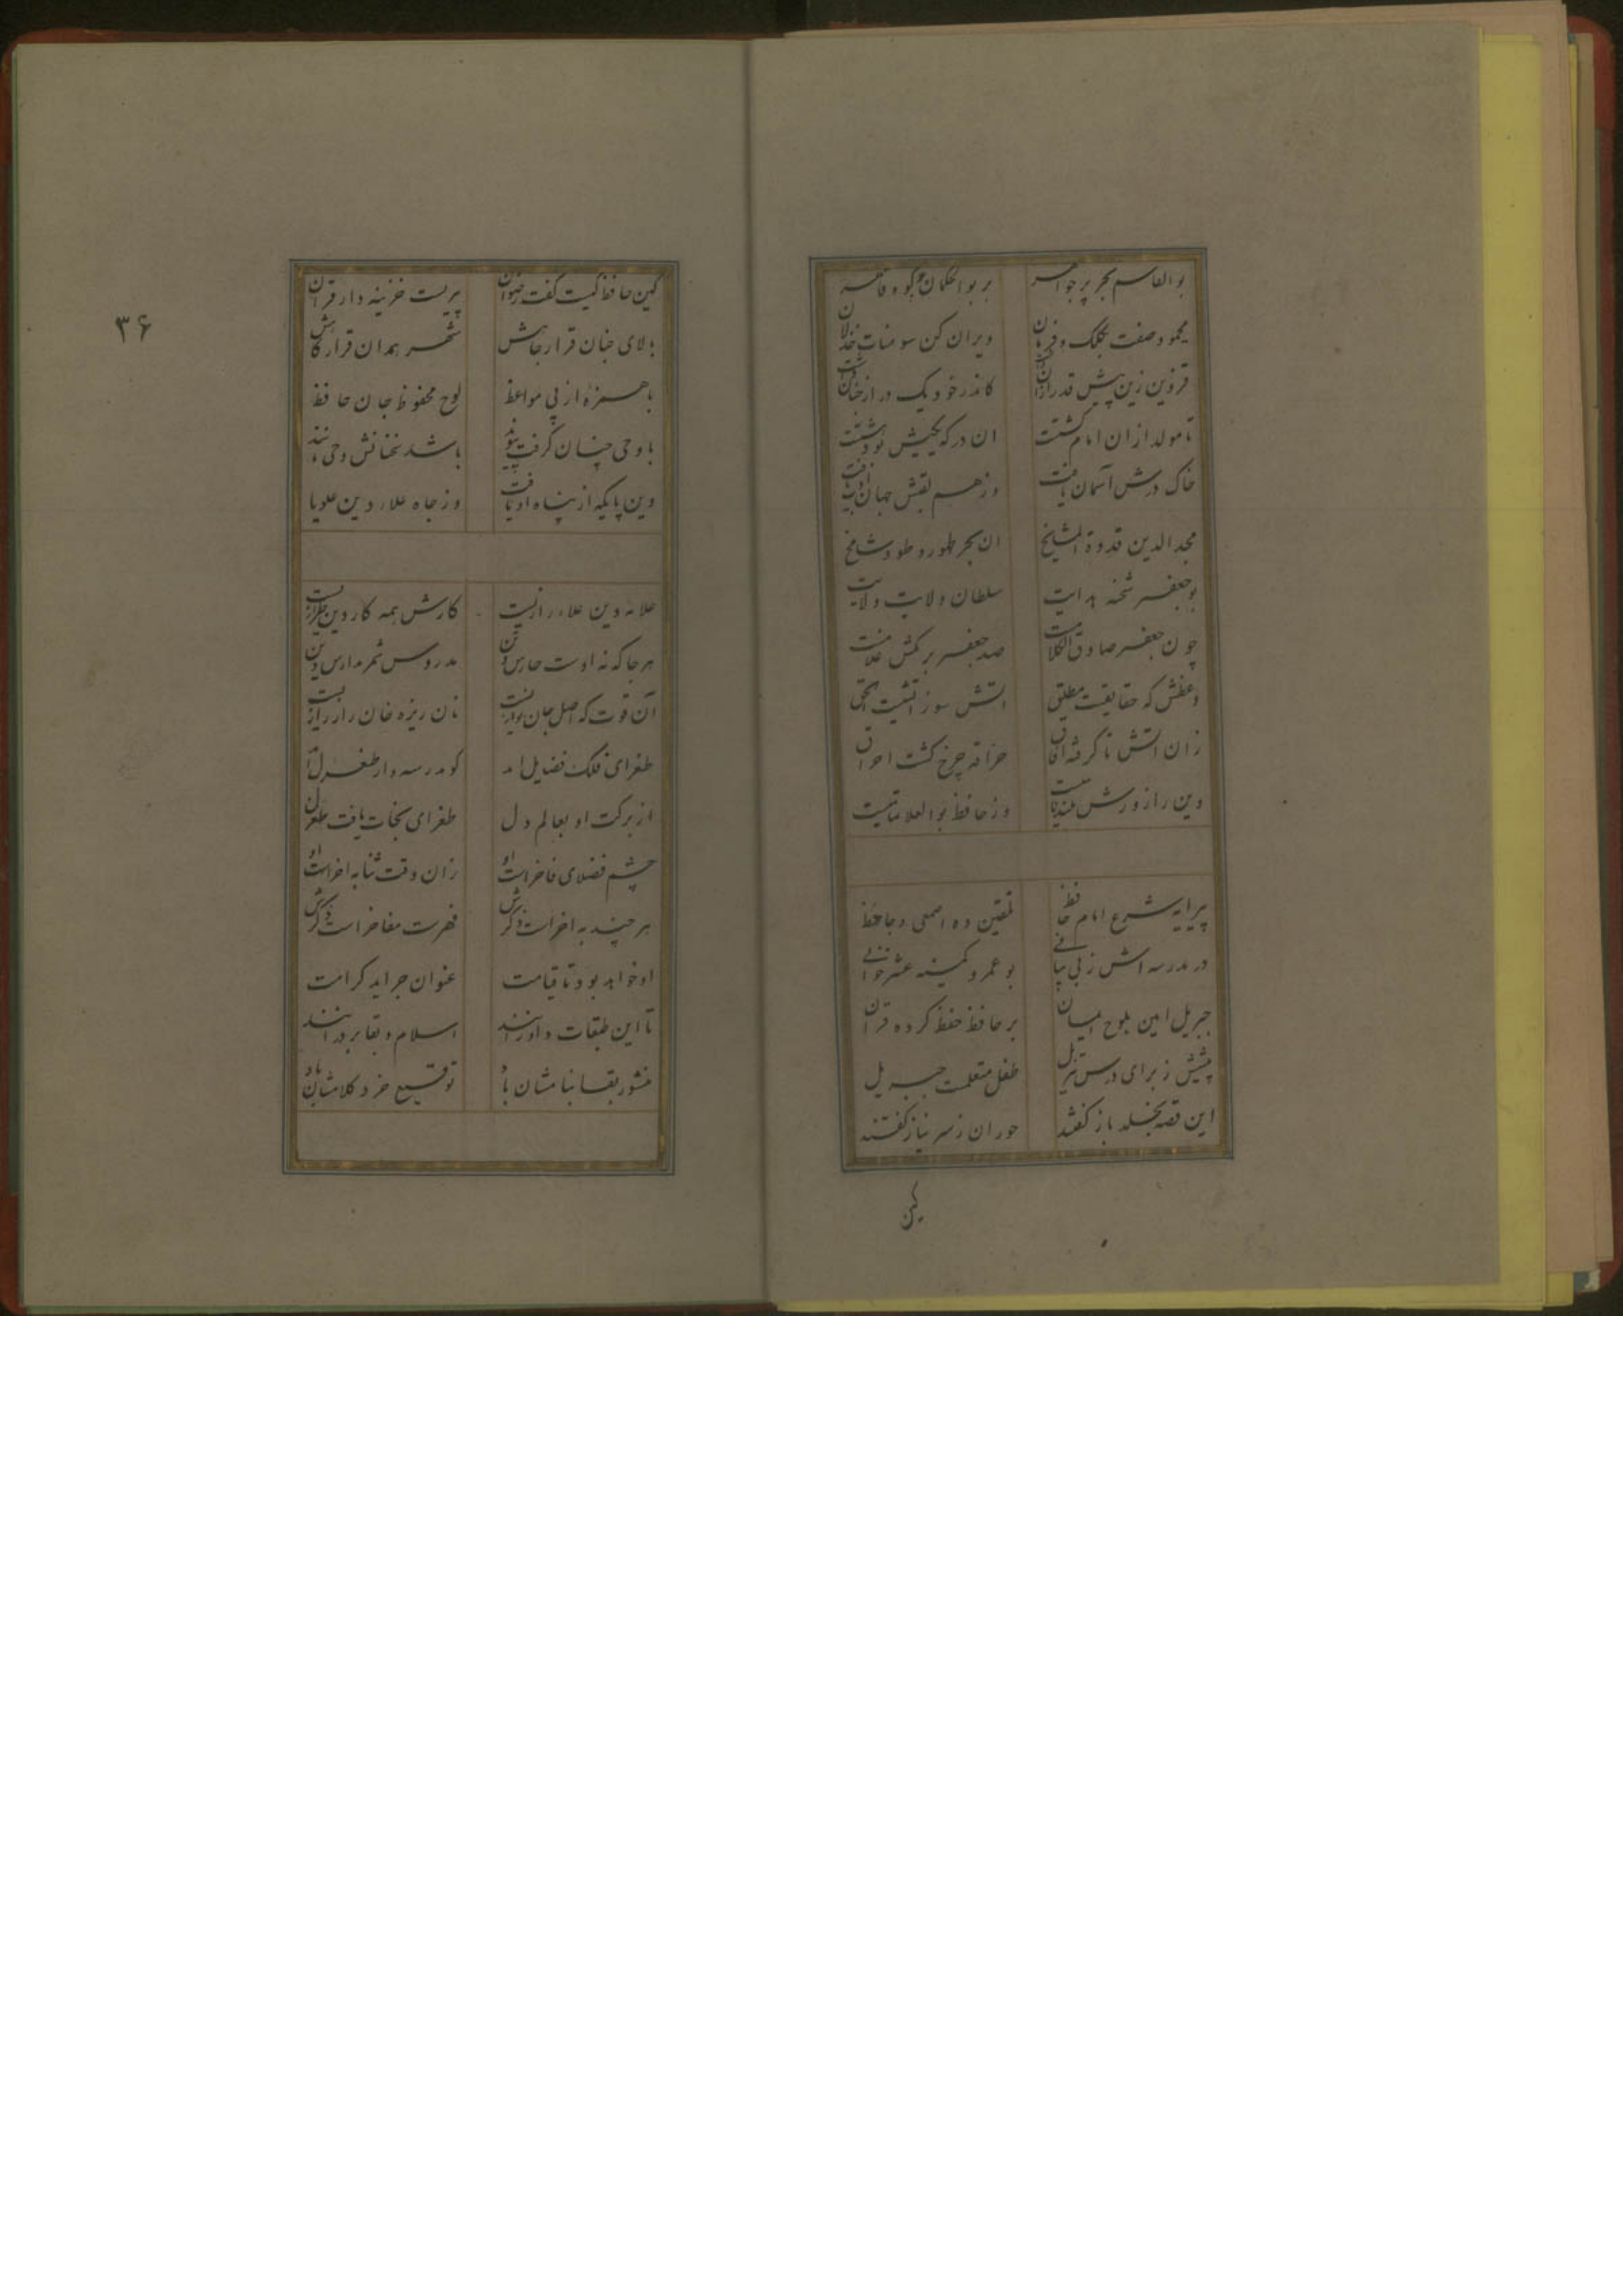 بوالقاسم بحر پر جواهر بر بوالحکمان چو کوه قاهر
محمود صفت بکلک و فرمان ویران کن سومنات خذلان
قزوین زین پیش قدر از آن داشت کاندر خود یک در از جنان داشت
تا مولد از آن امام کشت ان در که یکیش بود هشت
خاک درش آسمان یافت وز هم نقبش جهان
مجد الدین قدوة المشایخ ان بحر طهور و طود شامخ
بوجعفر شحنه هدایت سلطان ولایت ولایت
چون جعفر صادق الکلامت صد جعفر برمکش غلامت
وعظش که حقایقیست مطلق اتش سوز
زان اتش تا کرفته افاق حراقه چرخ کشت احراق
وین راز ورش وز حافظ بوالعلا
پیرایه شرع امام حافظ تلقین ده اصمعی و جاحظ
در مدرسه اش ز بی بیانی بو عمرو کمینه عشر خوانی
جبریل امین بلوح المسان بر حافظ حفظ کرده قرآن
پیشش ز برای درس تنزیل طفل متعلمست جبریل
این قصه بخلد باز گفتند حوران ز سر نیاز گفتند
کین
کین حافظ کیست گفت رضوان پیریست خزینه دار قرآن
بالای جنان قرار جاهش شهر همدان قرارگاهش
با همزه از پی مواعظ لوح محفوظ جان حافظ
با وحی چنان گرفت پیوند باشد سخنانش وحی مانند
وین پایکه از پناه او یافت وز جاه علاء دین علو یافت
علامه دین علاء رازیست کارش همه کار دین طرازیست
هرجا که نه اوست حارس دین مدروس شمر مدارس دین
آن قوت که اصل جان نوازیست نان ریزه خان رازیست
طغرای فلک فضایل امد کو مدرسه دار طغرل آمد
از برکت او بعالم دل طغرای نجات یافت طغرل
چشم فضلای فاخرست او زان وقت ثنا به اخرست او
هر چند به اخرست ذکرش فهرست مفاخرست ذکرش
او خواهد بود تا قیامت عنوان جراید کرامت
تا این طبقات داورانند اسلام و بقا برادرانند
منشور بقا بنامشان باد توقیع خرد کلامشان باد
۳۶